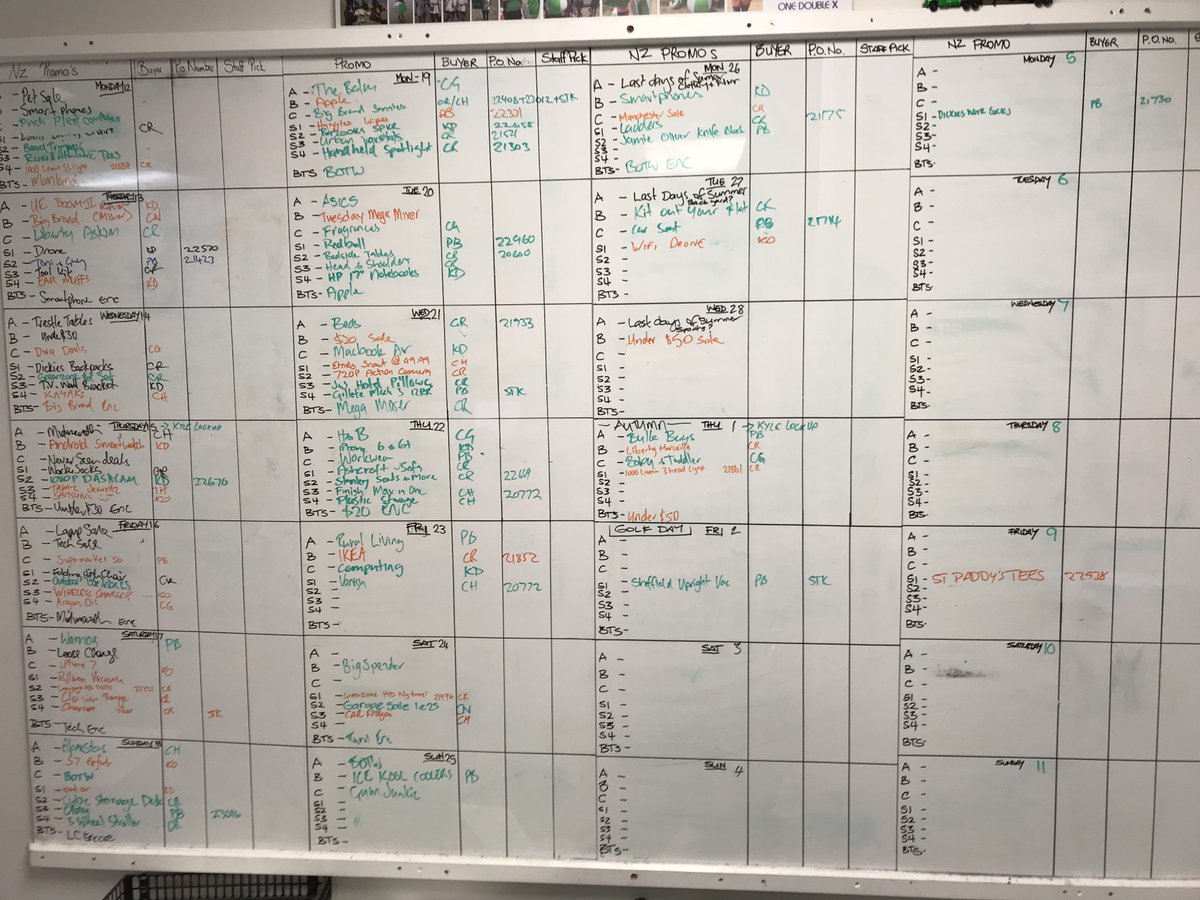 ONE DOUBLE X
NZ Promo's Buyer P.O Number Staff Pick
MONDAY 12
- Pet Sale
- Smart phones
CR
S3 - Russell Athletic Tees
S4 - 21189 CR
BTS -
TUESDAY 13
A - UE BOOM II KD
B - Big Brand CN
C - Liberty Askim CR
S1 - Drone KD 22570
S2 - PB 21423
S3 - Tool Kit CR
S4 - EAR MUFFS KD
BTS - Smartphone Enc
WEDNESDAY 14
A - Trestle Tables CR
B - Under $30
C - Deals CG
S1 - Dickies Backpacks CR
S2 - CR
S3 - T.V. Wall Bracket KD
S4 - KAYAKS CH
BTS - Big Brand Enc
THURSDAY 15 → KYLE LOCKUP
A - CH
B - Android Smartwatch KD
C - Never Seen deals
S1 - Work Socks
S2 - 1080P DASHCAM KD 22676
S3 -
S4 - SAMSUNG KD
BTS - Under $30 Enc
FRIDAY 16
A - Laptop Sale
B - Tech Sale
C - Supermarket PB
S1 - Folding High Chair
S2 - Outdoor CR
S3 - WIRELESS CHARGER KD
S4 - Argan Oil CG
BTS - Midmonth Enc
SATURDAY 17
A - Warrior PB
B - Loose Change
C - iPhone 7 KD
S1 - Pillman Vacuum
S2 - CR
S3 - CR
S4 - Charcoal CR STK
BTS - Tech Enc
SUNDAY 18
A - CH
B - S7 KD
C - BOTW
S1 - KD
S2 - Cube Storage Desk CR
S3 - Olay PB 23016
S4 - 3 Wheel Stroller CR
BTS - LC Encore
PROMO BUYER P.O. No. Staff Pick
MON - 19
A - The Balm CG
B - Apple CR/CH
C - Big Brand Sunnies PB 22301
S1 - Huggies Wipes CR
S2 - KD 22658
S3 - Urban CR 21521
S4 - Handheld Spotlight CR 21303
BTS BOTW
TUE 20
A - ASICS
B - Tuesday Mega Mixer
C - Fragrances CG
S1 - Redbull PB 22960
S2 - Bedside Tables CR 20600
S3 - Head & Shoulders CR
S4 - HP 17" Notebooks KD
BTS - Apple
WED 21
A - Beds CR 21933
B - $20 Sale
C - Macbook Air KD
S1 - @ 49.99 CH
S2 - 720P Action Camera CR
S3 - JW Hotel Pillows CR
S4 - Gillette Mach 3 12PK PB STK
BTS - Mega Mixer CR
THU 22
A - H&B CG
B - iPhone 6 & 6+ KD
C - Workwear PB
S1 - Ashcroft Sofa CR
S2 - Stanley Seats & More CR 22669
S3 - Finish Max in One CH 20772
S4 - Plastic Storage CR
BTS - $20 ENC
FRI 23
A - Rural Living PB
B - IKEA CR 21852
C - Computing KD
S1 - Vanish CH 20772
S2 -
S3 -
S4 -
BTS -
SAT 24
A -
B - Big Spender
C -
S1 - CR
S2 - Garage Sale CN
S3 - CAR Fridges
S4 - CH
BTS - Rural Enc
SUN 25
A - BOTW
B - ICE KOOL COOLERS PB
C - Gum Junkie
S1 -
S2 -
S3 -
S4 -
BTS -
NZ PROMOS BUYER P.O. No. STAFF PICK
MON 26
A - Last days of Summer
B - Smartphones KD
C - Manchester Sale CR
S1 - Ladders CR 21775
S2 - Jamie Oliver Knife Block PB
S3 -
S4 -
BTS - BOTW ENC
TUE 27
A - Last Days of Summer
Back yard?
B - Kit out Your Flat CR
C - Car Seat PB 21784
S1 - WiFi DRONE KD
S2 -
S3 -
S4 -
BTS -
WED 28
A - Last days of Summer
Sports?
B - Under $50 Sale
C -
S1 -
S2 -
S3 -
S4 -
BTS -
- Autumn - THU 1 → KYLE LOCKUP
A - Bulk Buys PB
B - Liberty Marseille CR
C - Baby & Toddler CG
S1 - 1000 Lumen 3 Head Light 21861 CR
S2 -
S3 -
S4 -
BTS - Under $50
GOLF DAY FRI 2
A -
B -
C -
S1 - Sheffield Upright Vac PB STK
S2 -
S3 -
S4 -
BTS -
SAT 3
A -
B -
C -
S1 -
S2 -
S3 -
S4 -
BTS -
SUN 4
A -
B -
C -
S1 -
S2 -
S3 -
S4 -
BTS -
NZ PROMO BUYER P.O. NO.
MONDAY 5
A -
B -
C -
S1 - DICKIES WORK SOCKS PB 21730
S2 -
S3 -
S4 -
BTS -
TUESDAY 6
A -
B -
C -
S1 -
S2 -
S3 -
S4 -
BTS -
WEDNESDAY 7
A -
B -
C -
S1 -
S2 -
S3 -
S4 -
BTS -
THURSDAY 8
A -
B -
C -
S1 -
S2 -
S3 -
S4 -
BTS -
FRIDAY 9
A -
B -
C -
S1 - ST PADDY'S TEES 22938
S2 -
S3 -
S4 -
BTS -
SATURDAY 10
A -
B -
C -
S1 -
S2 -
S3 -
S4 -
BTS -
SUNDAY 11
A -
B -
C -
S1 -
S2 -
S3 -
S4 -
BTS -